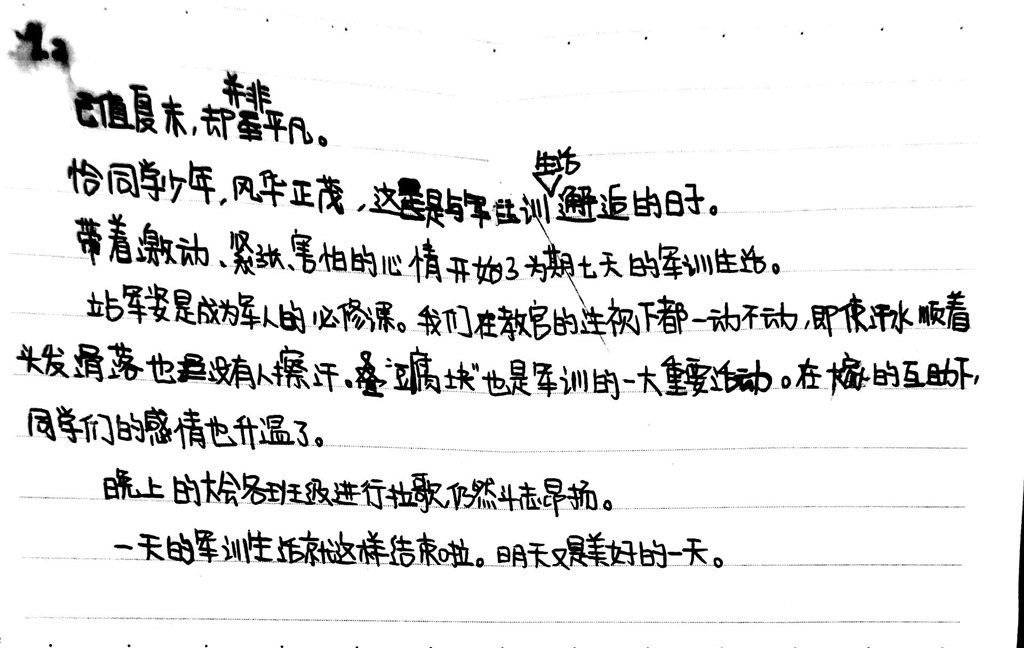 已值夏末,却并非平凡。
恰同学少年,风华正茂,这是与军训生活邂逅的日子。
带着激动、紧张、害怕的心情开始了为期七天的军训生活。
站军姿是成为军人的必修课。我们在教官的注视下都一动不动,即使汗水顺着
头发滑落也没有人擦汗。叠“豆腐块”也是军训的一大重要活动。在大家的互助下,
同学们的感情也升温了。
晚上的大会各班级进行拉歌仍然斗志昂扬。
一天的军训生活就这样结束啦。明天又是美好的一天。